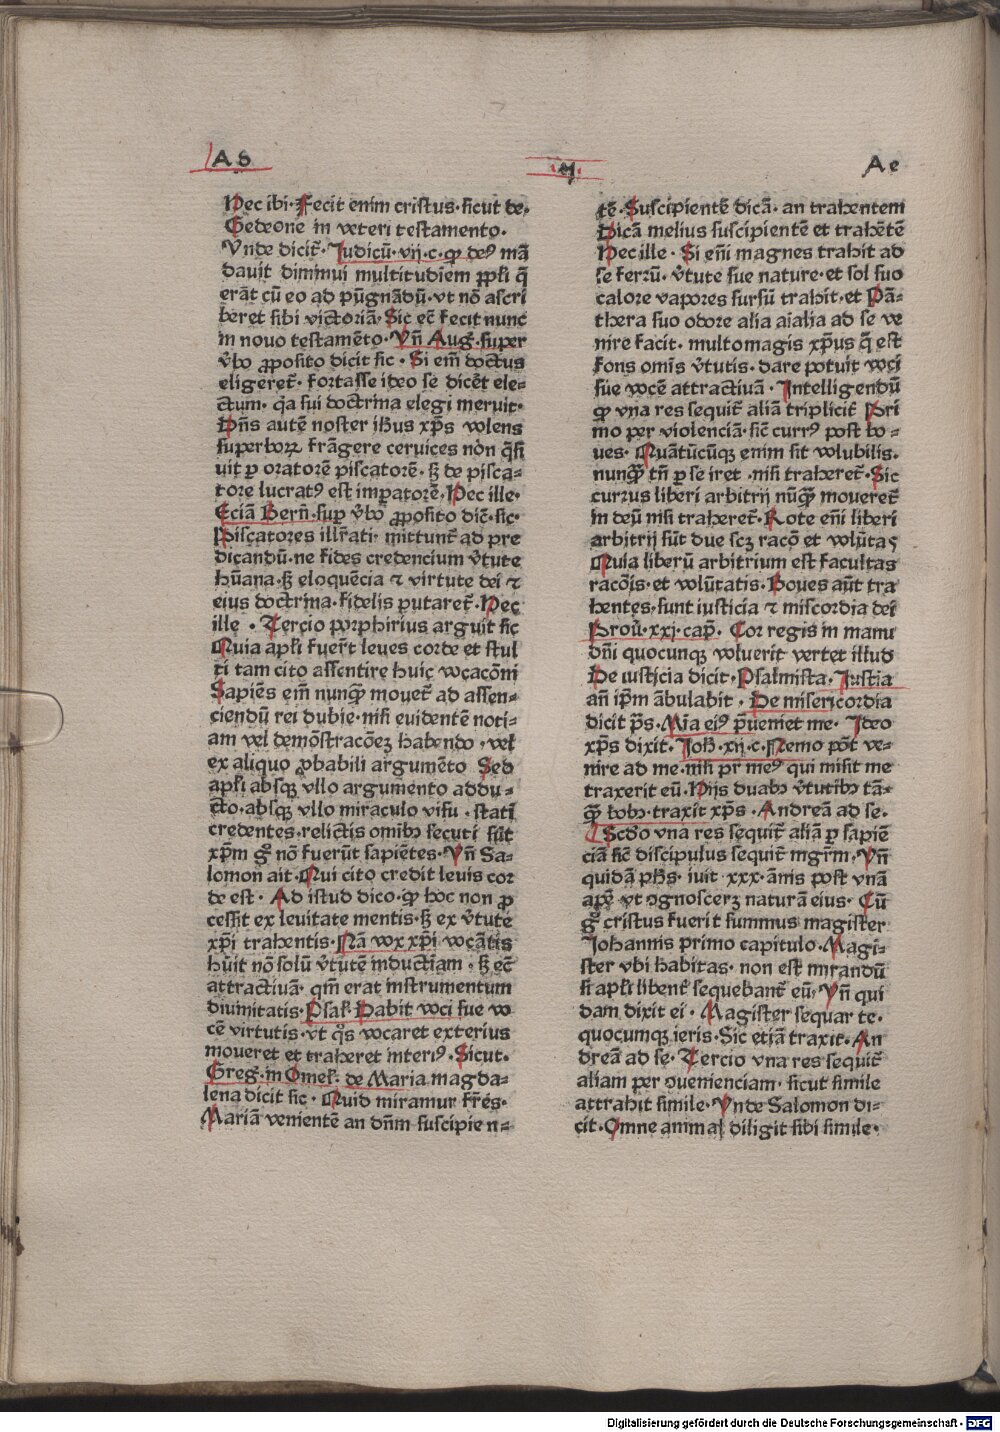 A S
·4·
A e
Hec ibi· Fecit enim cristus· sicut de·
Gedeone in veteri testamento·
Vnde dicit̄· Judicū· vij·c· ꝙ deꝰ mā
dauit diminui multitudiem ꝓpli q̄
erāt cū eo ad pūgnādū· vt nō ascri
beret sibi victoriā· Sic ec̄ fecit nunc
in nouo testamēto· Vn̄ Auḡ· super
v̄bo ꝓposito dicit sic· Si em̄ doctus
eligeret̄· fortasse ideo se dicēt ele⸗
ctum· q̄a sui doctrina elegi meruit·
Dn̄s autē noster ih̄us xp̄s volens
superboꝝ frāgere ceruices nōn q̄si
uit ꝑ oratorē piscatorē· sꝫ de pisca⸗
tore lucratꝰ est impatorē· Hec ille·
Eciā Bern̄· sup v̄bo ꝓposito dic̄· sic·
Piscatores illr̄ati· mittunt̄ ad pre
dicandū· ne fides credencium v̄tute
hūana· sꝫ eloquēcia ⁊ virtute dei ⁊
eius doctrina· fidelis putaret̄· Hec
ille · Tercio porphirius arguit sic
Quia apl̄i fuer̄t leues corde et stul
ti tam cito assentire huic vocacōni
Sapiēs em̄ nunqꝫ mouet̄ ad assen⸗
ciendū rei dubie· nisi euidentē noti⸗
am vel demōstracōeꝫ habendo · vel
ex aliquo ꝓbabili argumēto Sed
apl̄i absqꝫ vllo argumento addu⸗
cto· absqꝫ vllo miraculo visu · statī
credentes· relictis omibꝫ secuti sūt
xp̄m gͦ nō fuerūt sapiētes· Vn̄ Sa⸗
lomon ait· Qui cito credit leuis cor
de est · Ad istud dico· ꝙ hoc non ꝓ
cessit ex leuitate mentis· sꝫ ex v̄tute
xp̄i trahentis· Nā vox xp̄i vocātis
hūit nō solū v̄tutē inductiam · sꝫ ec̄
attractiuā· qm̄ erat instrumentum
diuinitatis· Psal̄· Dabit voci sue vo
cē virtutis· vt q̊s vocaret exterius
moueret et traheret interiꝰ· Sicut·
Greḡ· in Omel̄· de Maria magda⸗
lena dicit sic· Quid miramur fr̄es·
Mariā venientē an dn̄m suscipien⸗
tē· Suscipientē dicā· an trahentem
Dicā melius suscipientē et trahētē
Hec ille · Si em̄ magnes trahit ad
se ferrū· v̄tute sue nature· et sol suo
calore vapores sursū trahit· et Pā⸗
thera suo odore alia aīalia ad se ve
nire facit· multomagis xp̄us q̄ est
fons omīs v̄tutis· dare potuit voci
sue vocē attractiuā· Intelligendū
ꝙ vna res sequit̄ aliā triplicit̄ Pri
mo per violenciā· sic̄ currꝰ post bo⸗
ues· Quātūcūqꝫ enim sit volubilis·
nunqꝫ tn̄ ꝑ se iret · nisi traheret̄· Sic
currus liberi arbitrij nūqꝫ moueret̄
in deū nisi traheret̄· Rote em̄ liberi
arbitrij sūt due scꝫ racō et volūtas
Quia liberū arbitrium est facultas
racōis· et volūtatis· Boues aūt tra
hentes· sunt iusticia ⁊ miscordia dei
Prou̇· xxj· cap̄· Cor regis in manu
dn̄i quocunqꝫ voluerit vertet illud
De iusticia dicit· Psalmista· Justia
an̄ ip̄m ābulabit · De misericordia
dicit ps̄· Mīa eiꝰ p̄ueniet me· Ideo
xp̄s dixit· Joh̄· xij·c· Nemo pōt ve⸗
nire ad me· nisi pr̄ meꝰ qui misit me
traxerit eū· Hijs duabꝫ v̄tutibꝫ tā⸗
qꝫ lorꝫ· traxit xp̄s · Andreā ad se·
Scd̄o vna res sequit̄ aliā ꝑ sapiē
ciā sic̄ discipulus sequit̄ mgr̄m· Vn̄
quidā ph̄s· iuit xxx· ānis post vnā
apē vt ꝯgnosceꝛꝫ naturā eius· Cū
gͦ cristus fuerit summus magister
Johannis primo capitulo· Magi⸗
ster vbi habitas· non est mirandū
si apl̄i libent̄ sequebant̄ eū· Vn̄ qui
dam dixit ei· Magister sequar te·
quocumqꝫ ieris· Sic etiā traxit· An
dreā ad se· Tercio vna res sequit̄
aliam per ꝯuenienciam· sicut simile
attrahit simile· Vnde Salomon di⸗
cit· Omne animal diligit sibi simile·
Digitalisierung gefördert durch die Deutsche Forschungsgemeinschaft - DFG